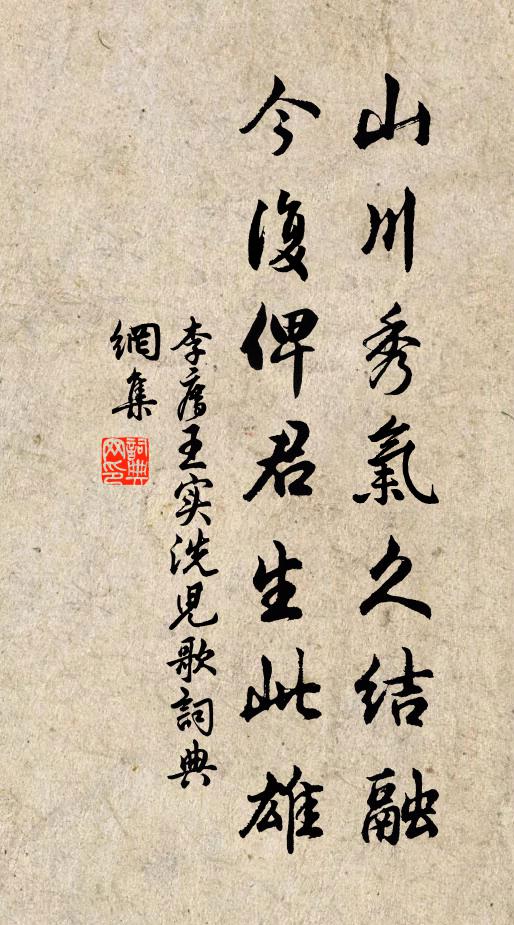 山川秀氣久結融
今復俾君生此雄
李廌王实洗児歌詞典
網集
詞典網印